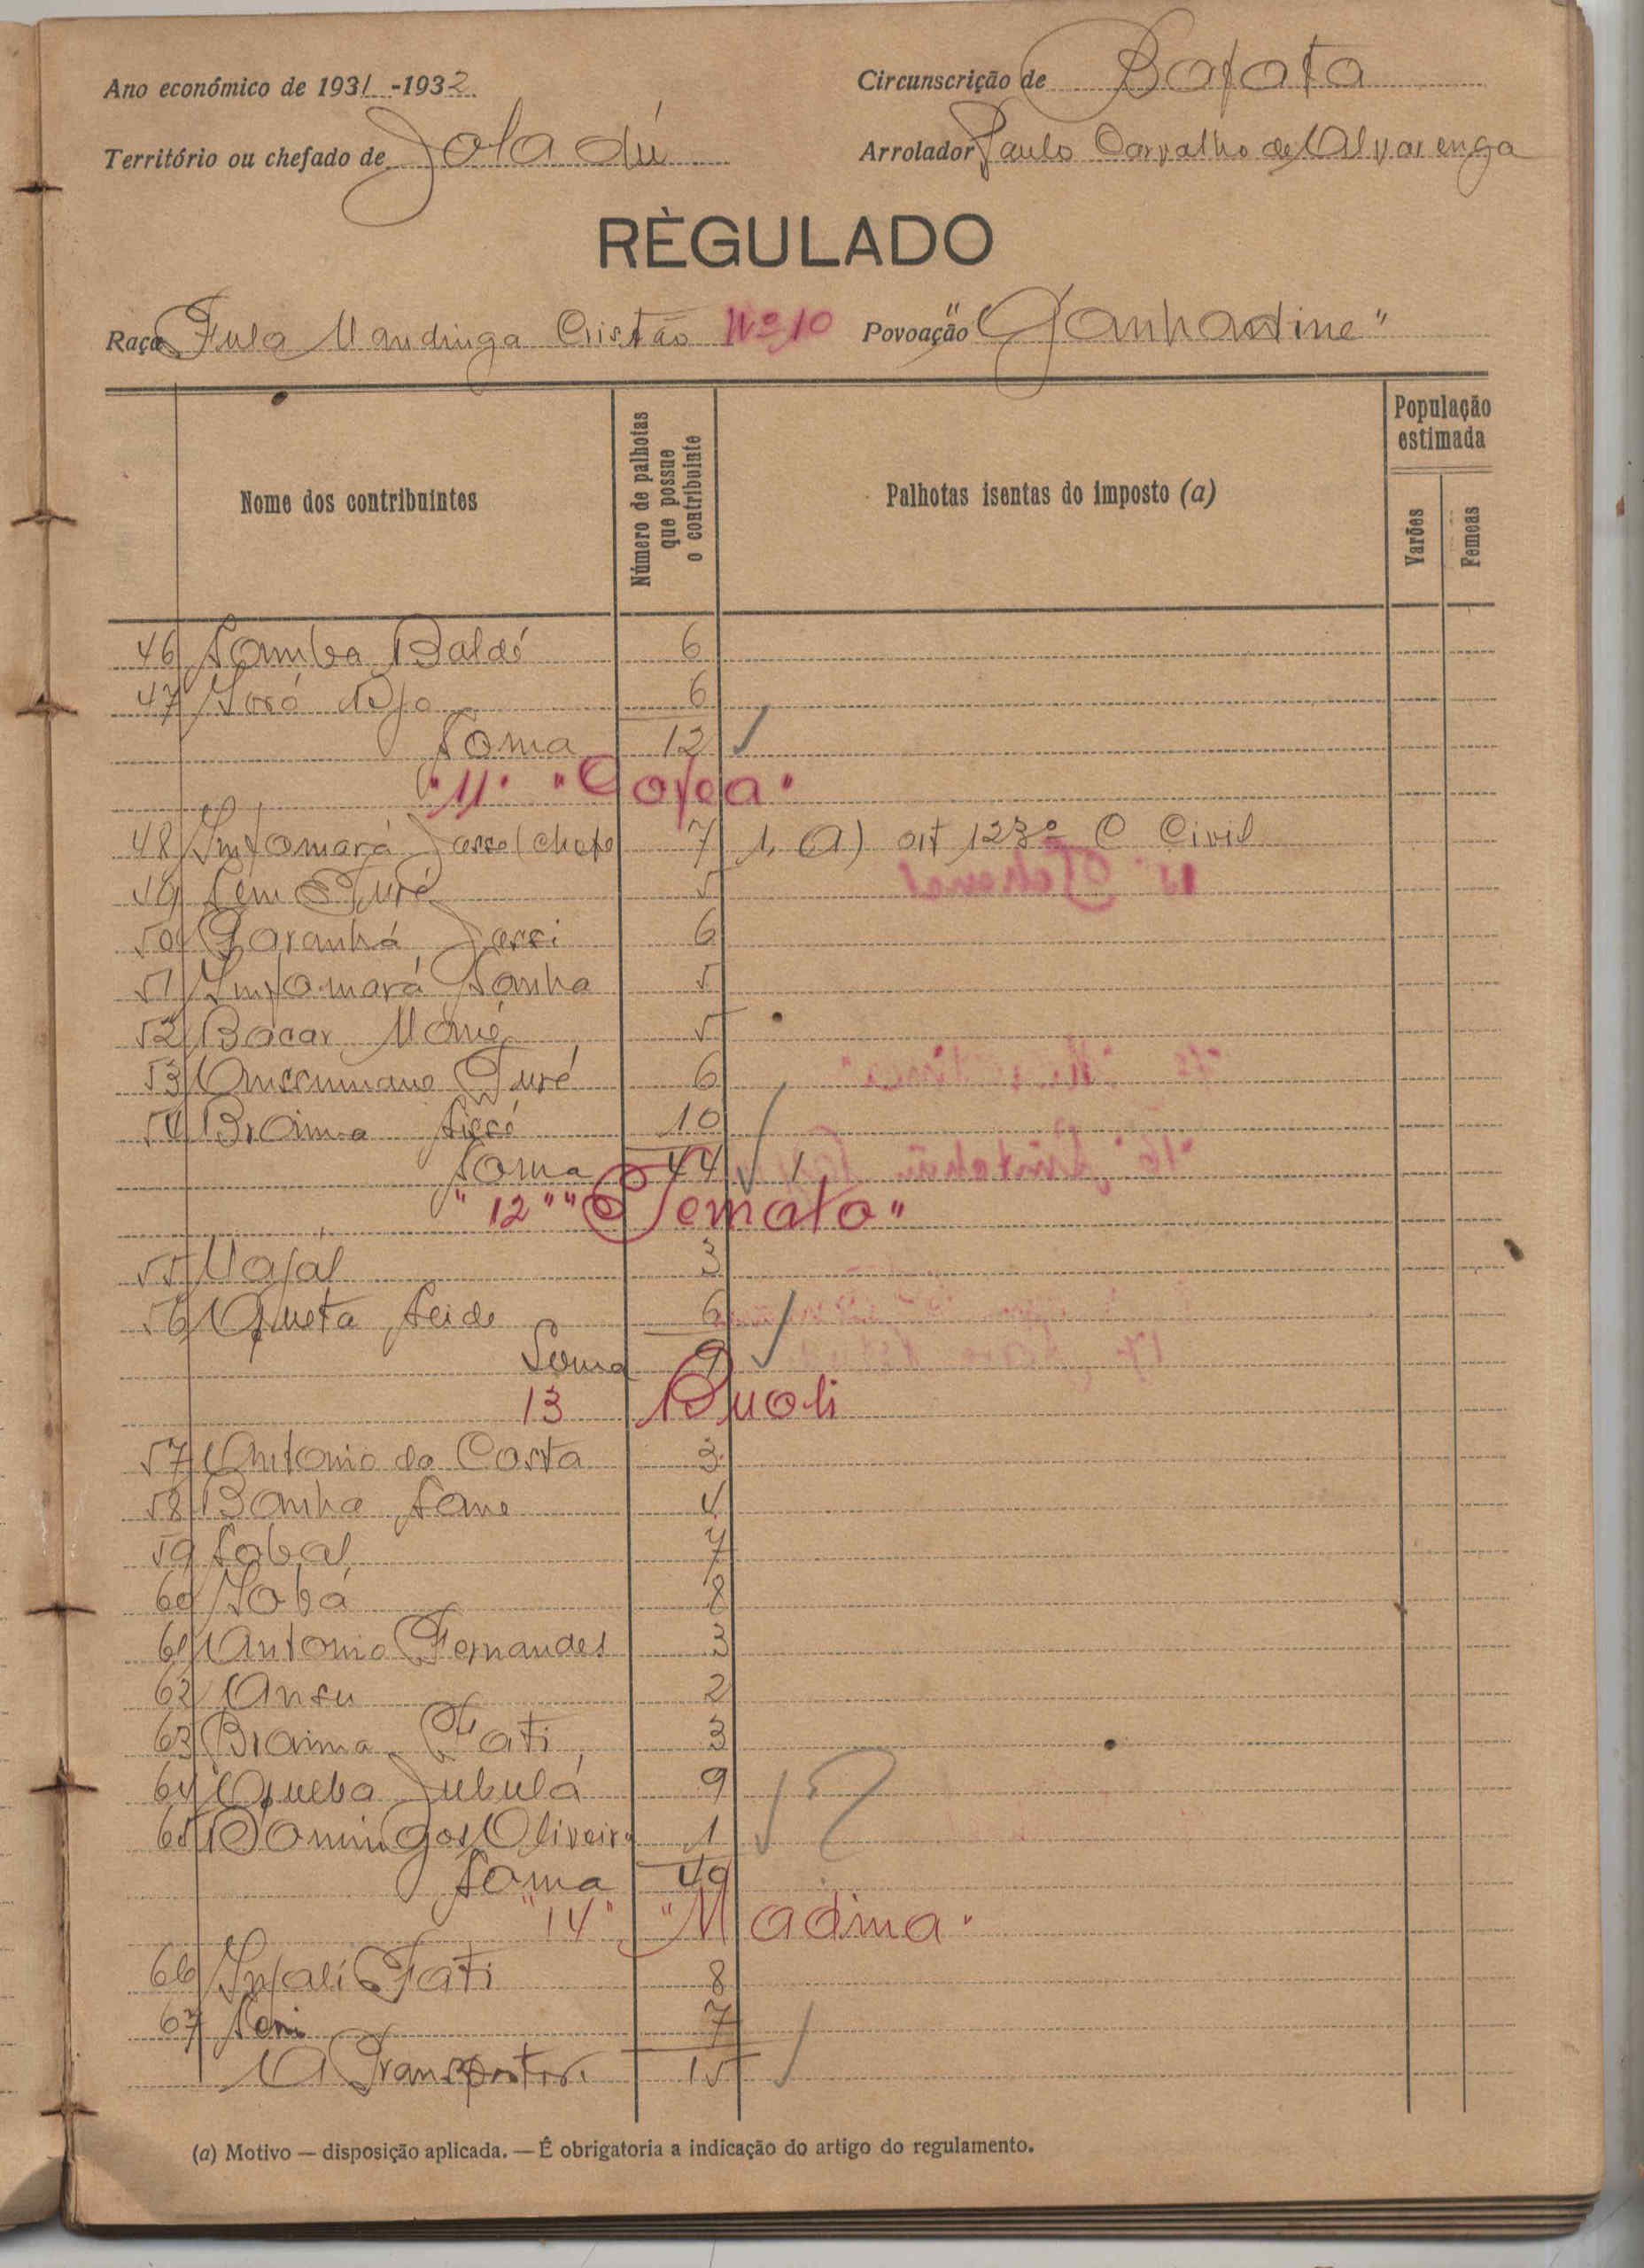 Ano económico de 1931-1932
Circunscrição de Bafata
Território ou chefado de Joladú
Arrolador Paulo Carvalho de Alvarenga
RÈGULADO
Raça Fula Mandinga Cristão Nº 10 Povoação "Ganhadine"
Nome dos contribuintes
Número de palhotas que possue o contribuinte
Palhotas isentas do imposto (a)
População estimada
Varões
Femeas
46 Samba Baldé 6
47 6
Soma 12
"11" 
48 Infamará Jasse (chefe 7 1, a) art 123º C Civil
49 Turé 5
50 Garanhá Jassi 6
51 Infamará Sanha 5
52 Bacar Mané 5
53 Turé 6
54 Braima Sissé 10
Soma 44 1
"12" "Temato"
55 Mafal 3
56 Queta Seide 6
Soma 9
13 Buoli
57 Antonio da Costa 3
58 Banha Sane 4
59 Sabal 7
60 8
61 Antonio Fernandes 3
62 Ansu 2
63 Braima Fati 3
64 Queba Jubulá 9
65 Domingos Oliveira 1
Soma 40
"14" "Madina"
66 Infali Fati 8
67 7
A Transportar 15
(a) Motivo — disposição aplicada. — É obrigatoria a indicação do artigo do regulamento.